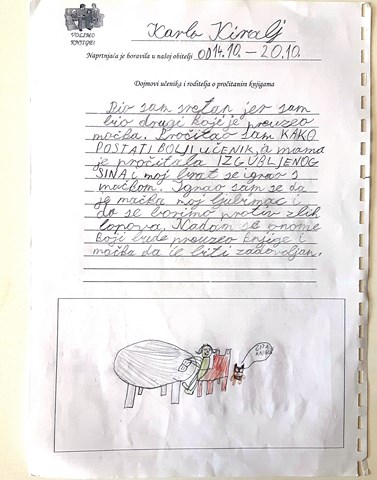 VOLIMO
KNJIGE!
Karlo Kiralj
Naprtnjača je boravila u našoj obitelji OD 14.10. – 20.10.
Dojmovi učenika i roditelja o pročitanim knjigama
Bio sam sretan jer sam
bio drugi koji je preuzeo
mačka. Pročitao sam KAKO
POSTATI BOLJI UČENIK, a mama
je pročitala IZGUBLJENOG
SINA i moj brat se igrao s
mačkom. Igrao sam se da
je mačka moj ljubimac i
da se borimo protiv zlih
lopova. Nadam se onome
koji bude preuzeo knjige i
mačka da će biti zadovoljan.